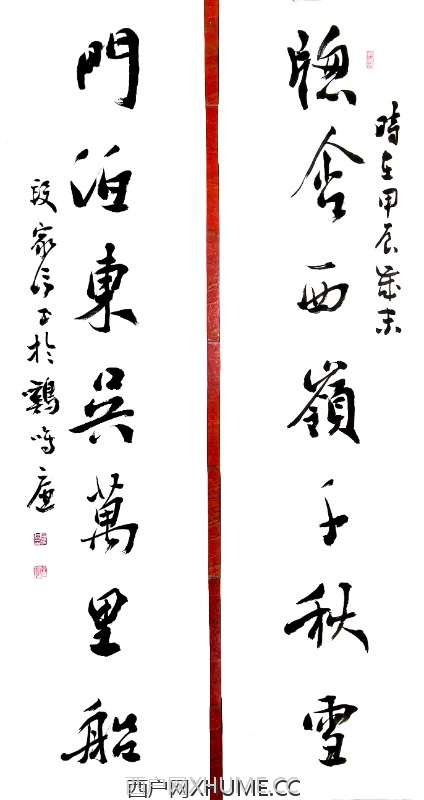 時在甲辰歲末
牕含西嶺千秋雪
門泊東吳萬里船
段家 書於 鳴
西户网XHUME.CC